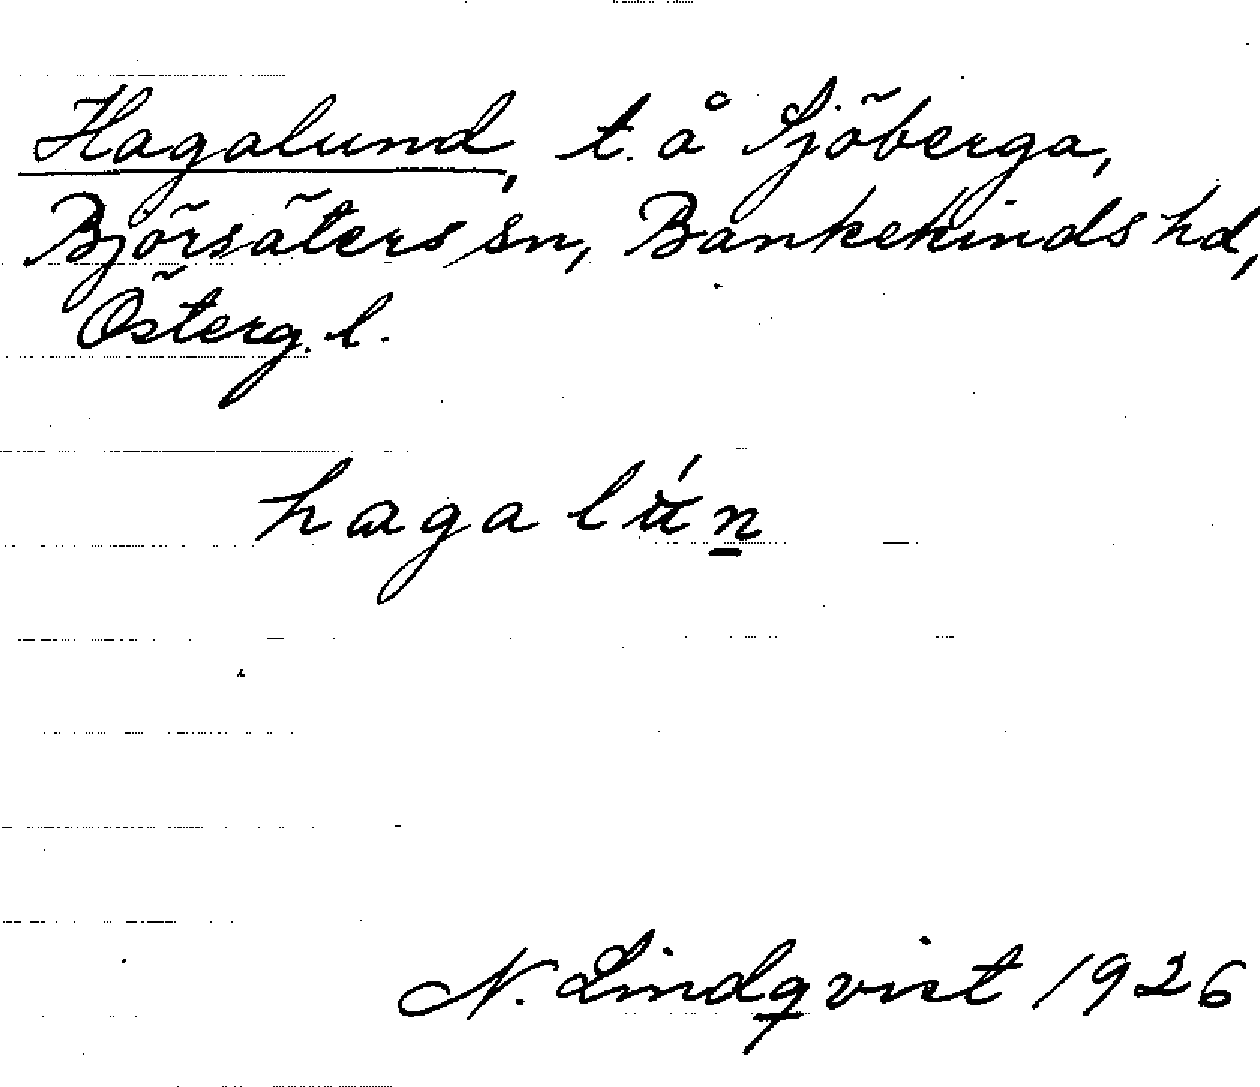 Hagalund, t. å Sjöberga,
Björsäters sn, Bankekinds hd,
Österg. l.
hagalún
N. Lindqvist 1926